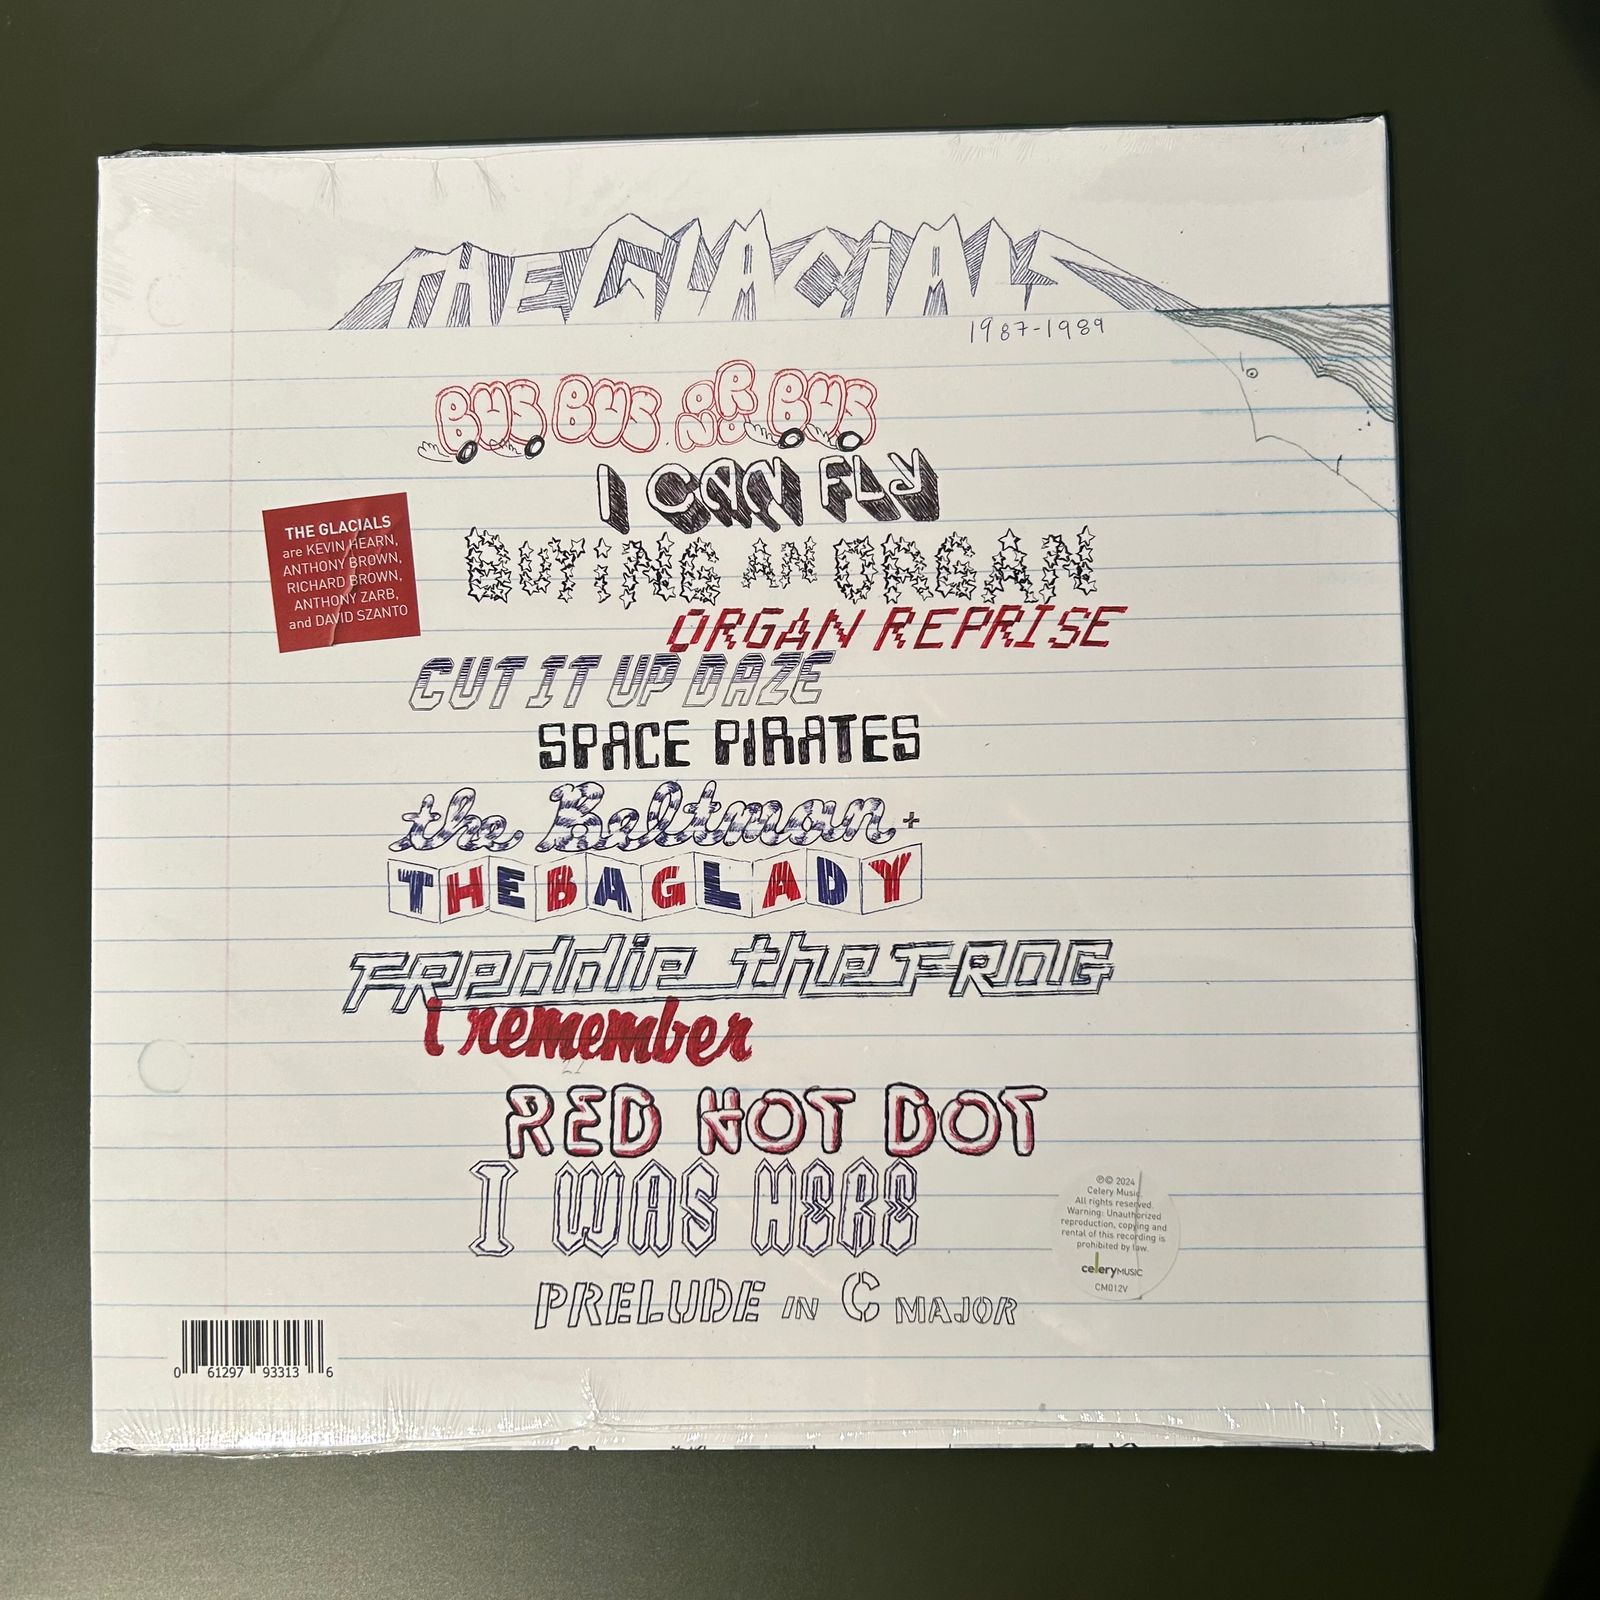 THE GLACIALS
1987-1989
BUS BUS OR NO BUS
I CAN FLY
BUYING AN ORGAN
ORGAN REPRISE
CUT IT UP DAZE
SPACE PIRATES
the Beltman +
THE BAG LADY
FReddie the FROG
I remember
RED HOT DOT
I WAS HERE
PRELUDE IN C MAJOR
THE GLACIALS
are KEVIN HEARN,
ANTHONY BROWN,
RICHARD BROWN,
ANTHONY ZARB,
and DAVID SZANTO
℗© 2024
Celery Music.
All rights reserved.
Warning: Unauthorized
reproduction, copying and
rental of this recording is
prohibited by law.
celeryMUSIC
CM012V
0 61297 93313 6